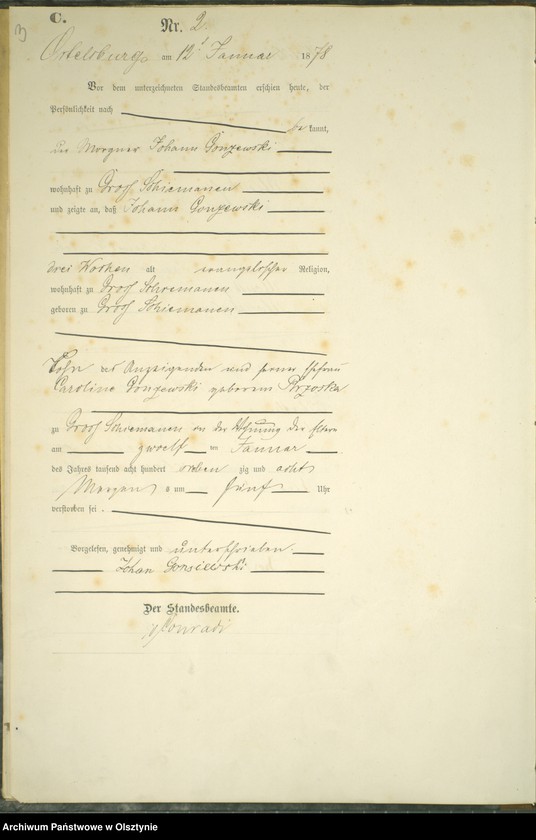 3
C.
Nr. 2
Ortelsburg am 12t Januar 1878
Vor dem unterzeichneten Standesbeamten erschien heute, der
Persönlichkeit nach
be kannt,
der Johann Gonzewski
wohnhaft zu Gross Schiemanen
und zeigte an, daß Johann Gonzewski
drei Wochen alt evangelischer Religion,
wohnhaft zu Gross Schiemanen
geboren zu Gross Schiemanen
Sohn des Anzeigenden und seiner Ehefrau
Caroline Gonzewski geborene
zu Gross Schiemanen in der Wohnung der Eltern
am zwoelf ten Januar
des Jahres tausend acht hundert sieben zig und acht
Morgens um fünf Uhr
verstorben sei.
Vorgelesen, genehmigt und unterschrieben
Johan Gonsiewski
Der Standesbeamte.
Conradi
Archiwum Państwowe w Olsztynie